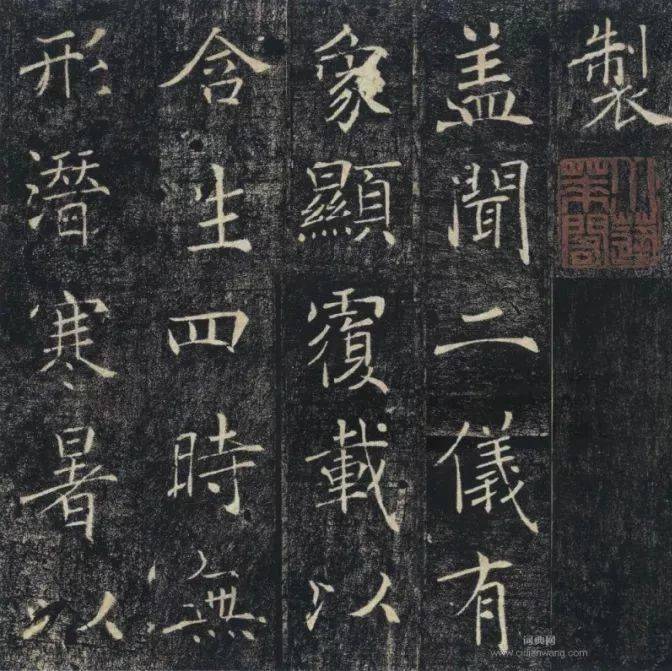 製
小蓬
萊閣
盖聞二儀有
象顯覆載以
含生四時無
形潛寒暑以
词典网
www.cidianwang.com